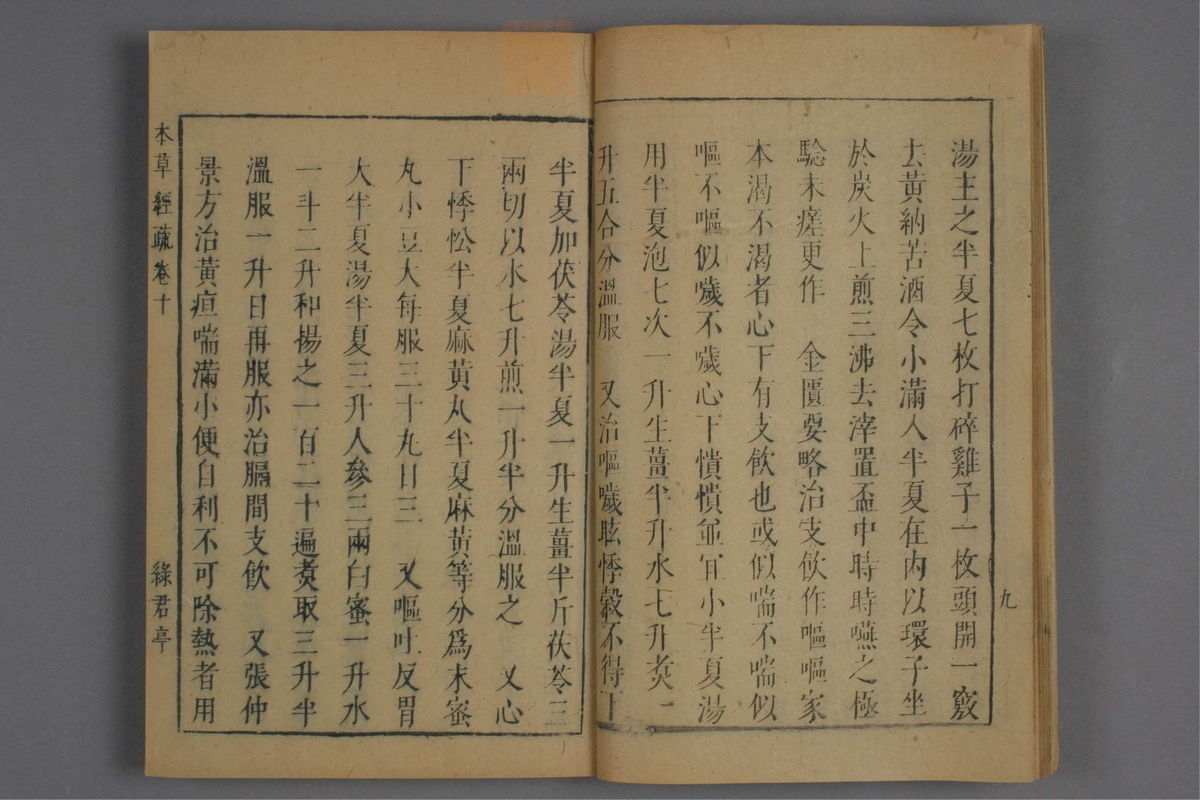 湯主之半夏七枚打碎雞子一枚頭開一竅
去黃納苦酒令小滿入半夏在內以環子坐
於炭火上煎三沸去滓置盃中時時嚥之極
驗未瘥更作　金匱要略治支飲作嘔嘔家
本渴不渴者心下有支飲也或似喘不喘似
嘔不嘔似噦不噦心下憒憒並宜小半夏湯
用半夏泡七次一升生薑半升水七升煑一
升五合分溫服　又治嘔噦眩悸穀不得下
九
半夏加茯苓湯半夏一升生薑半斤茯苓三
兩切以水七升煎一升半分溫服之　又心
下悸忪半夏麻黃丸半夏麻黃等分爲末蜜
丸小豆大每服三十丸日三　又嘔吐反胃
大半夏湯半夏三升人參三兩白蜜一升水
一斗二升和揚之一百二十遍煑取三升半
溫服一升日再服亦治膈間支飲　又張仲
景方治黃疸喘滿小便自利不可除熱者用
本草經疏卷十
綠君亭